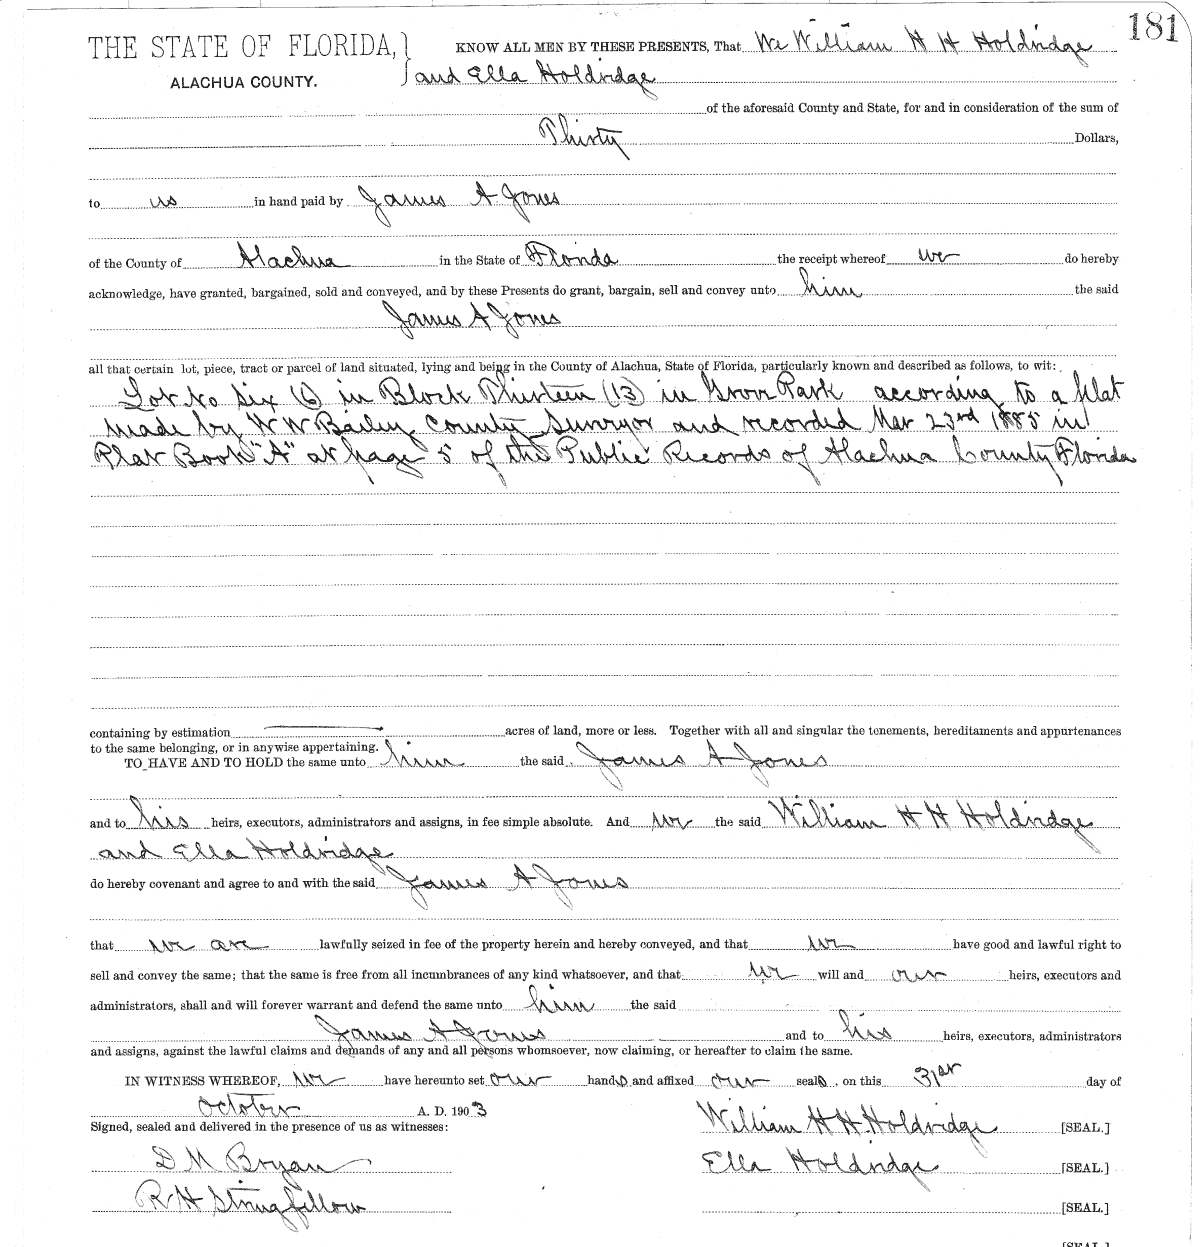 181
THE STATE OF FLORIDA, } KNOW ALL MEN BY THESE PRESENTS, That We William H H Holdridge
ALACHUA COUNTY. and Ella Holdridge
of the aforesaid County and State, for and in consideration of the sum of
Thirty Dollars,
to us in hand paid by James A Jones
of the County of Alachua in the State of Florida the receipt whereof we do hereby
acknowledge, have granted, bargained, sold and conveyed, and by these Presents do grant, bargain, sell and convey unto him the said
James A Jones
all that certain lot, piece, tract or parcel of land situated, lying and being in the County of Alachua, State of Florida, particularly known and described as follows, to wit:
Lot No Six (6) in Block Thirteen (13) in Grove Park according to a plat
made by W W Bailey County Surveyor and recorded Mar 23rd 1885 in
Plat Book "A" at page 5 of the Public Records of Alachua County Florida
containing by estimation acres of land, more or less. Together with all and singular the tenements, hereditaments and appurtenances
to the same belonging, or in anywise appertaining.
TO HAVE AND TO HOLD the same unto him the said James A Jones
and to his heirs, executors, administrators and assigns, in fee simple absolute. And we the said William H H Holdridge
and Ella Holdridge
do hereby covenant and agree to and with the said James A Jones
that we are lawfully seized in fee of the property herein and hereby conveyed, and that we have good and lawful right to
sell and convey the same; that the same is free from all incumbrances of any kind whatsoever, and that we will and our heirs, executors and
administrators, shall and will forever warrant and defend the same unto him the said
James A Jones and to his heirs, executors, administrators
and assigns, against the lawful claims and demands of any and all persons whomsoever, now claiming, or hereafter to claim the same.
IN WITNESS WHEREOF, we have hereunto set our hands and affixed our seals, on this 31st day of
October A. D. 1903
Signed, sealed and delivered in the presence of us as witnesses: William H H Holdridge [SEAL.]
D M Bryan Ella Holdridge [SEAL.]
R H Stringfellow [SEAL.]
[SEAL.]